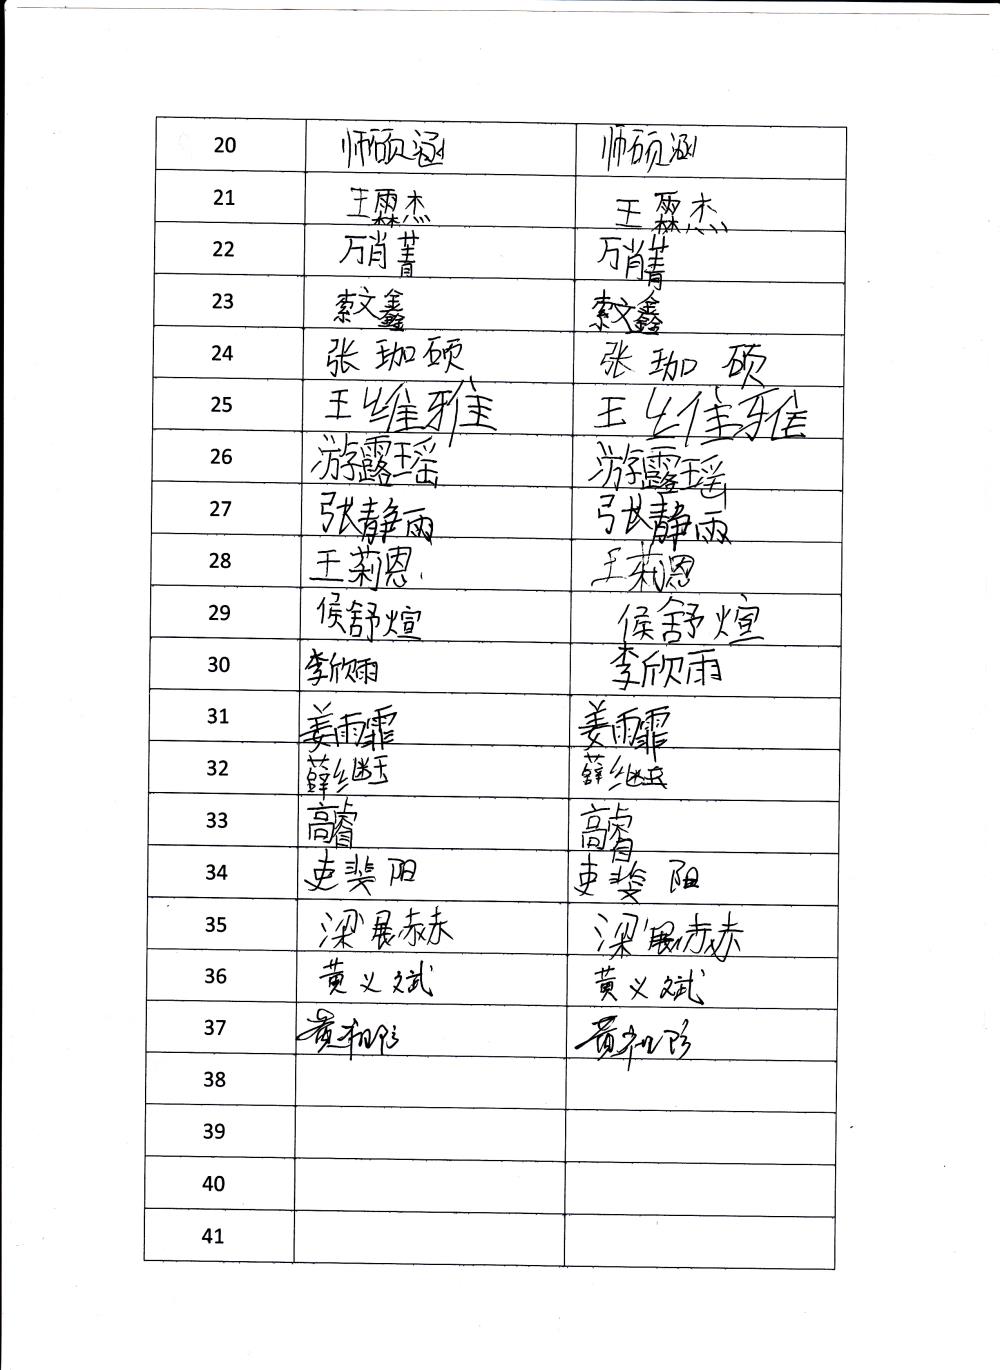 20 师硕涵 师硕涵
21 王霖杰 王霖杰
22 万肖菁 万肖菁
23 索文鑫 索文鑫
24 张珈硕 张珈硕
25 王维雅 王维雅
26 游露瑶 游露瑶
27 张静雨 张静雨
28 王莉恩 王莉恩
29 侯舒煊 侯舒煊
30 李欣雨 李欣雨
31 姜雨霏 姜雨霏
32 薛继玉 薛继玉
33 高睿 高睿
34 吏斐阳 吏斐阳
35 梁展赫 梁展赫
36 黄义斌 黄义斌
37 黄 黄
38
39
40
41